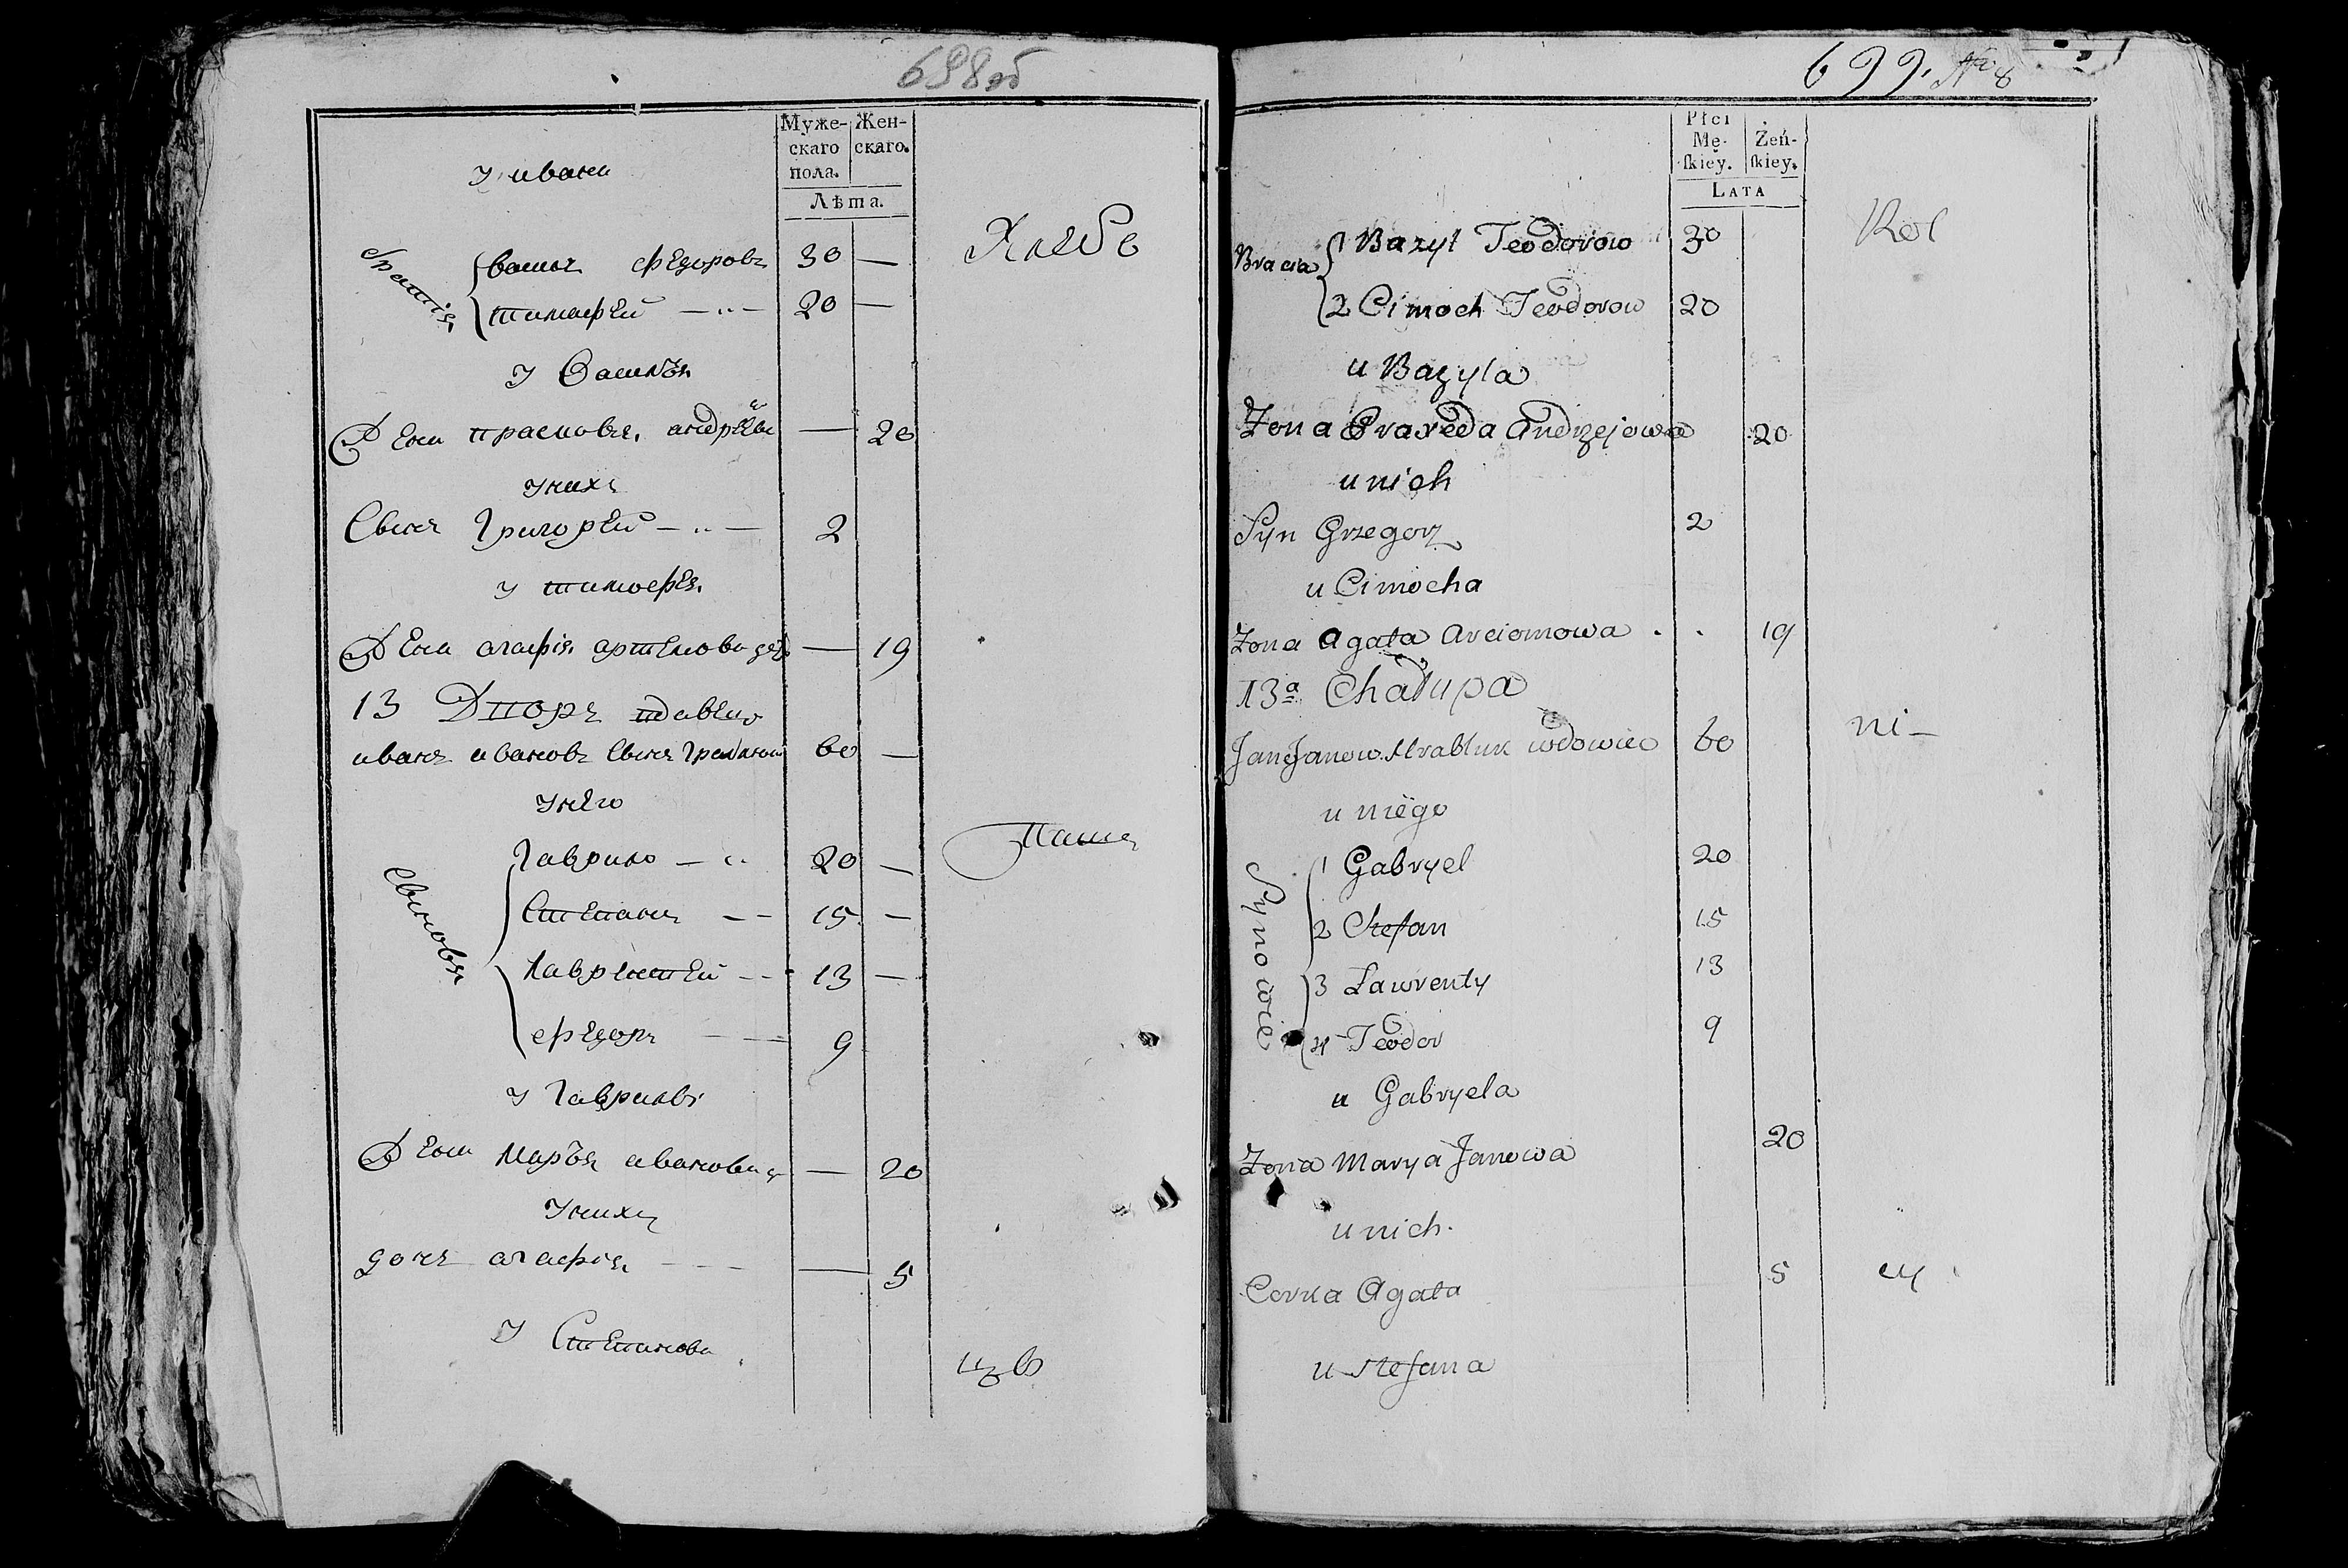 698об
Муже- Жен-
скаго скаго.
пола.
Лѣта.
у ивана
братія
василь Фёдоровъ 30 —
тимофей — " — 20 —
у Василья
Жена прасковья андрѣева — 20
у нихъ
Сынъ Григорей — " — 2
у тимофея
Жена агафія артемова — 19
13 Дворъ
иванъ ивановъ Сынъ 60 —
у него
Сыновья
Гаврило — " 20 —
Степанъ — — 15 —
Лаврентей — — 13 —
Фёдоръ — — 9
у Гаврилы
Жена марья иванова — 20
у нихъ
дочь агафія — — — — 5
у Степанова
Хлебо
Паше
699. № 8
Płci
Mę- Żeń-
skiey. skiey.
LATA
Bracia
1 Bazyl Teodorow 30
2 Cimoch Teodorow 20
u Bazyla
Żona Praxeda Andrzejowa 20
u nich
Syn Grzegorz 2
u Cimocha
Żona Agata Arciomowa . . 19
13ª Chałupa
Jan Janow Hrabluk wdowiec 60
u niego
Synowie
1 Gabryel 20
2 Stefan 15
3 Lawrenty 13
4 Teodor 9
u Gabryela
Żona Marya Janowa 20
u nich.
Corka Agata 5
u Stefana
Rol
ni —
cy